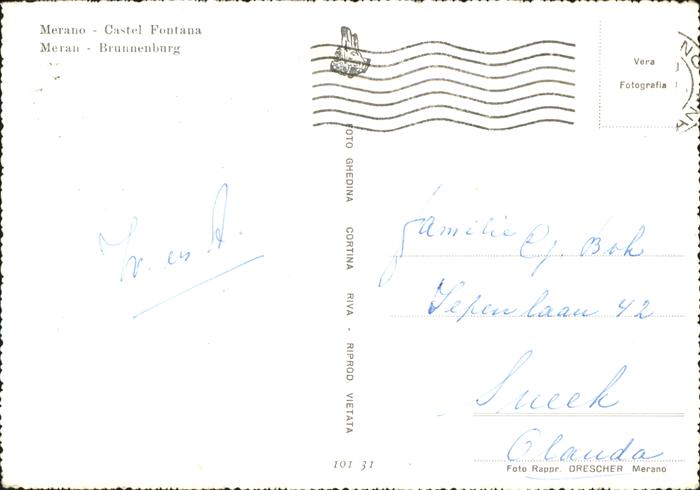 Merano - Castel Fontana
Meran - Brunnenburg
Vera
Fotografia
FOTO GHEDINA CORTINA RIVA - RIPROD VIETATA
en A.
familie Cj. Bok
Iepenlaan 42
Sneek
Olanda
101 31
Foto Rappr. DRESCHER Merano